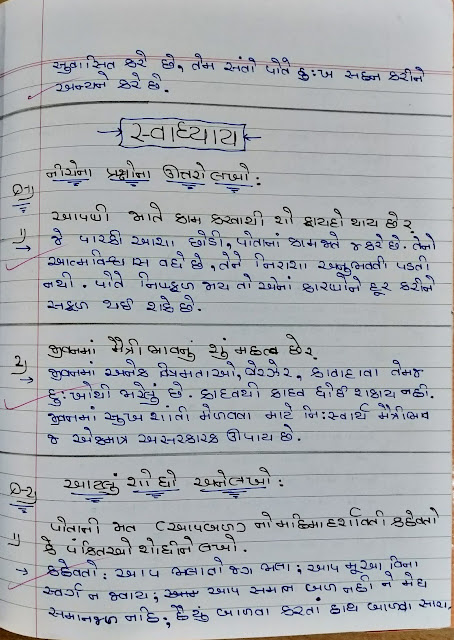 સુવાસિત કરે છે, તેમ સંતો પોતે દુ:ખ સહન કરીને
અન્યને કરે છે.
સ્વાધ્યાય
પ્ર-૧) નીચેના પ્રશ્નોના ઉત્તરો લખો :
આપણી જાતે કામ કરવાથી શો ફાયદો થાય છે ?
૧) → જે પારકી આશા છોડી, પોતાનાં કામ જાતે જ કરે છે. તેનો
આત્મવિશ્વાસ વધે છે, તેને નિરાશા અનુભવવી પડતી
નથી. પોતે નિષ્ફળ જાય તો એનાં કારણોને દૂર કરીને
સફળ થઈ શકે છે.
૨) જીવનમાં મૈત્રીભાવનું શું મહત્વ છે ?
→ જીવનમાં અનેક વિષમતાઓ, વેરઝેર, કાવાદાવા તેમજ
દુ:ખોથી ભરેલું છે. કાદવથી કાદવ ધોઈ શકાય નહી.
જીવનમાં સુખ શાંતી મેળવવા માટે નિ:સ્વાર્થ મૈત્રીભાવ
જ એકમાત્ર અસરકારક ઊપાય છે.
પ્ર-૨ આટલું શોધો અને લખો :
૧) પોતાની જાત (આપબળ) નો મહિમા દર્શાવતી કહેવતો
કે પંક્તિઓ શોધીને લખો.
→ કહેવતો : આપ ભલા તો જગ ભલા ; આપ મૂઆ વિના
સ્વર્ગે ન જવાય ; આપ સમાન બળ નહી ને મેઘ
સમાન જળ નહિ ; હૈયું બાળવા કરતાં હાથ બાળવા સારા.